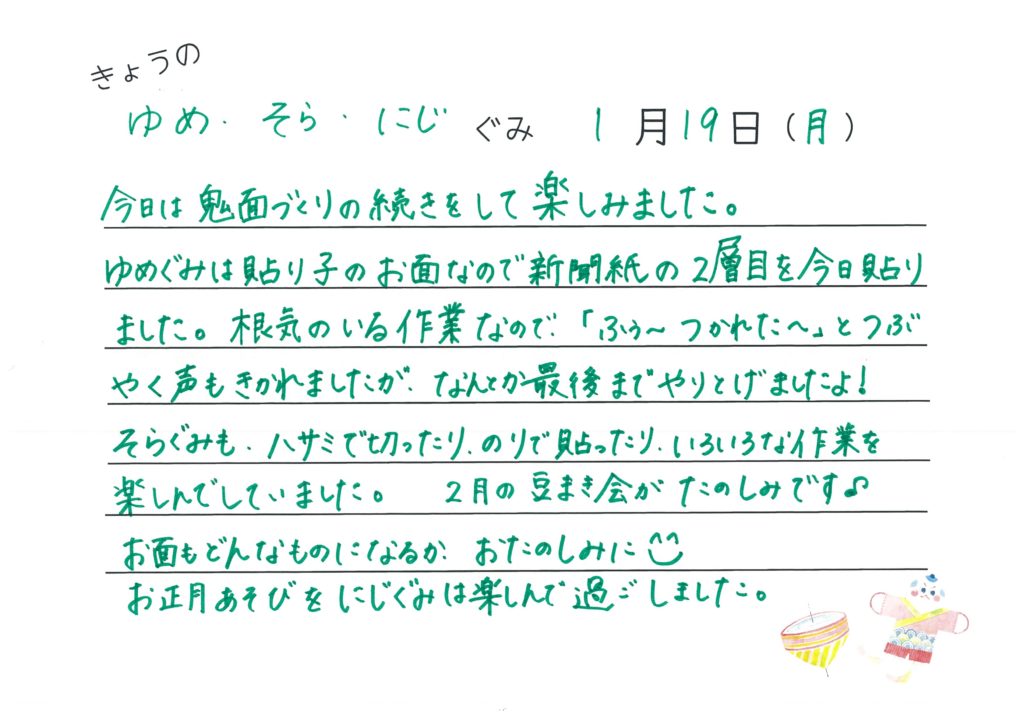 きょうの
ゆめ・そら・にじ ぐみ 1月19日(月)
今日は鬼面づくりの続きをして楽しみました。
ゆめぐみは貼り子のお面なので新聞紙の2層目を今日貼り
ました。根気のいる作業なので、「ふぅ〜つかれたへ」とつぶ
やく声もきかれましたが、なんとか最後までやりとげましたよ!
そらぐみも、ハサミで切ったり、のりで貼ったり、いろいろな作業を
楽しんでしていました。 2月の豆まき会がたのしみです♪
お面もどんなものになるか、おたのしみに^^
お正月あそびをにじぐみは楽しんで過ごしました。